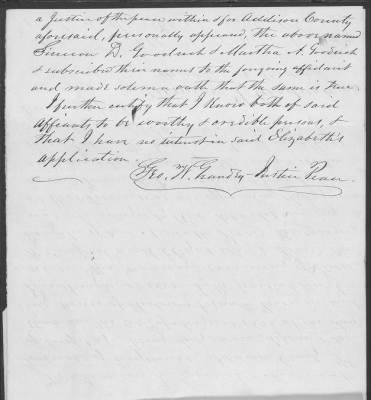 a Justice of the peace within & for Addison County
aforesaid, personally appeared, the above named
Simeon D. Goodrich & Martha A. Goodrich
& subscribed their names to the forgoing affidavit
and made solemn oath that the same is true.
I further certify that I know both of said
affiants to be worthy & credible persons, &
that I have no interest in said Elizabeth's
application.
Geo. W. Grandey - Justice Peace.